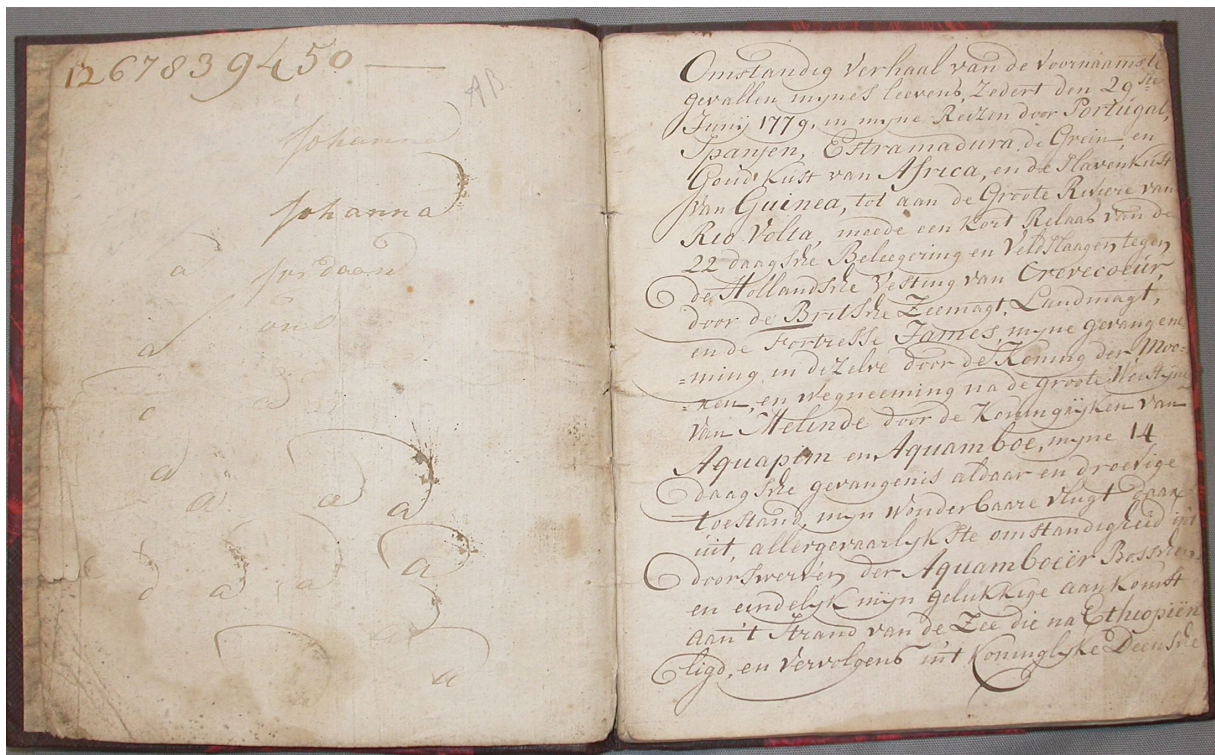 1267839450
AB
Johanna
Johanna
a
a
a
a
a
a
a
a
a
a
a
Omstandig Verhaal van de Voornaamste
gevallen mynes leevens, Zedert den 29ste
Junij 1779, in myne Reizen door Portugal,
Spanjen, Estramadura, de Grein, en
Goud Kust van Africa, en de Slavenkust
van Guinea, tot aan de Groote Riviere van
Rio Volta, meede een Kort Relaas van de
22 daagsche Beleegering en Veldslaagen tegen
de Hollandsche Vesting van Crevecoeur,
door de Britsche Zeemagt, Landmagt,
en de Fortresse James, myne gevangenee
=ming in dezelve door de Koning der Moo=
=ren, en wegneeming na de groote Woestyne
van Melinde door de Koningrijken van
Aquapim en Aquamboe, myne 14
daagsche gevangenis aldaar en droevige
toestand, mijn wonderbaare vlugt daar
uit, allergevaarlykste omstandigheid in't
doorswerven der Aquamboeër Bosschen
en eindelyk mijn gelukkige aankomst
aan't Strand van de Zee die na Ethiopiën
ligd, en vervolgens in't Koninglyke Deensche